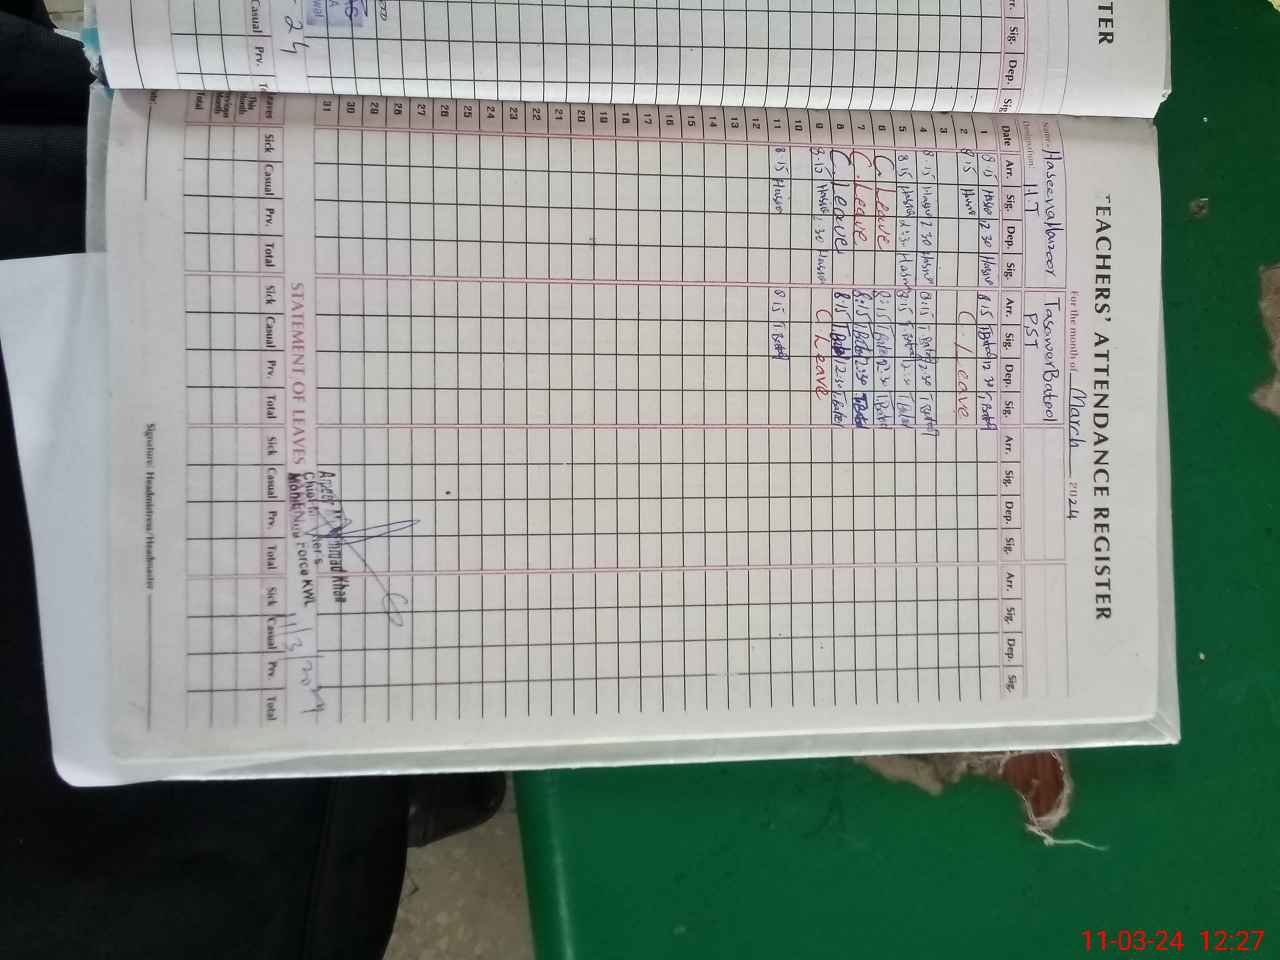 TEACHERS' ATTENDANCE REGISTER
For the month of March 2024
Name:- Haseena Tasawer Batool
Designation: H.T PST
Date Arr. Sig. Dep. Sig. Arr. Sig. Dep. Sig. Arr. Sig. Dep. Sig. Arr. Sig. Dep. Sig.
1 8:15 2:30 8:15 T.Batool 2:30 T.Batool
2 8:15 C. Leave
3
4 8:15 2:30 8:15 T.Batool 2:30 T.Batool
5 8:15 2:30 8:15 T.Batool 2:30 T.Batool
6 C. Leave 8:15 T.Batool 2:30 T.Batool
7 C. Leave 8:15 T.Batool 2:30 T.Batool
8 C. Leave 8:15 T.Batool 2:30 T.Batool
9 8:15 C Leave
10
11 8:15 8:15 T.Batool
12
13
14
15
16
17
18
19
20
21
22
23
24
25
26
27
28
29
30
31
STATEMENT OF LEAVES
Force KWL
11/3/2024
Leaves Sick Casual Prv. Total Sick Casual Prv. Total Sick Casual Prv. Total Sick Casual Prv. Total
This Month
Previous Month
Total
Signature: Headmistress/Headmaster
TER
Arr. Sig. Dep. Sig
24
Casual Prv.
11-03-24 12:27